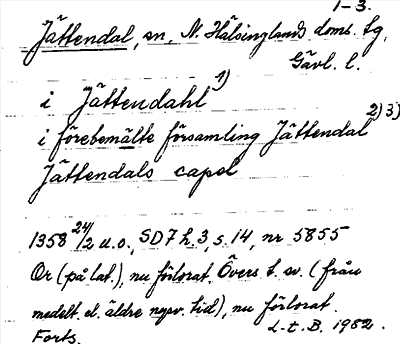 1-3.
Jättendal, sn, N. Hälsinglands doms. tg,
Gävl. l.
i Jättendahl 1)
i förebemälte församling Jättendal 2) 3)
Jättendals capel
1358 24/2 u.o., SD 7 h 3, s. 14, nr 5855
Or (på lat), nu förlorat. Övers t. sv. (från
medelt. el. äldre nysv. tid), nu förlorat.
Forts. L-t. B. 1982.